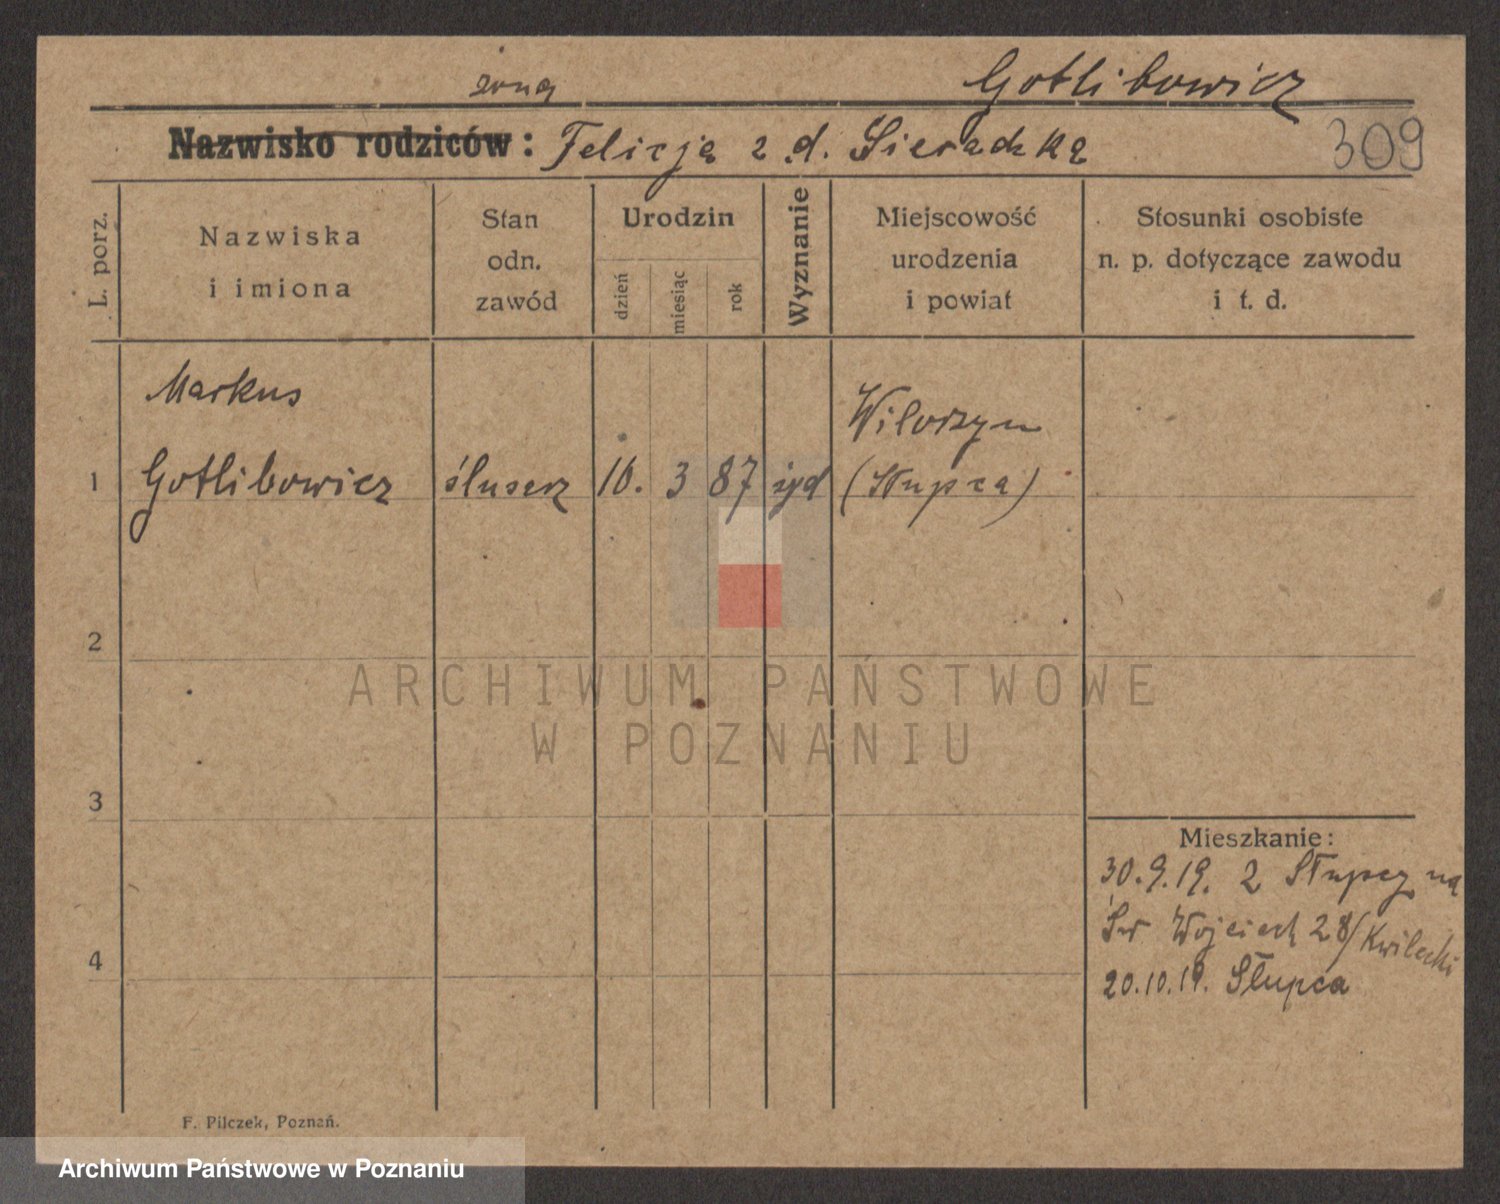 żona Gotlibowicz
Nazwisko rodziców: Felicja z d. Sieradzka
309
L. porz.
Nazwiska
i imiona
Stan
odn.
zawód
Urodzin
dzień
miesiąc
rok
Wyznanie
Miejscowość
urodzenia
i powiat
Stosunki osobiste
n. p. dotyczące zawodu
i t. d.
Markus Wilorzyn
1 Gotlibowicz ślusarz 10. 3 87 żyd (Słupca)
2
ARCHIWUM PAŃSTWOWE
W POZNANIU
3
Mieszkanie:
30.9.19. z Słupcy na
4 Św Wojciech 28/Kwilecki
20.10.19. Słupca
F. Pilczek, Poznań.
Archiwum Państwowe w Poznaniu